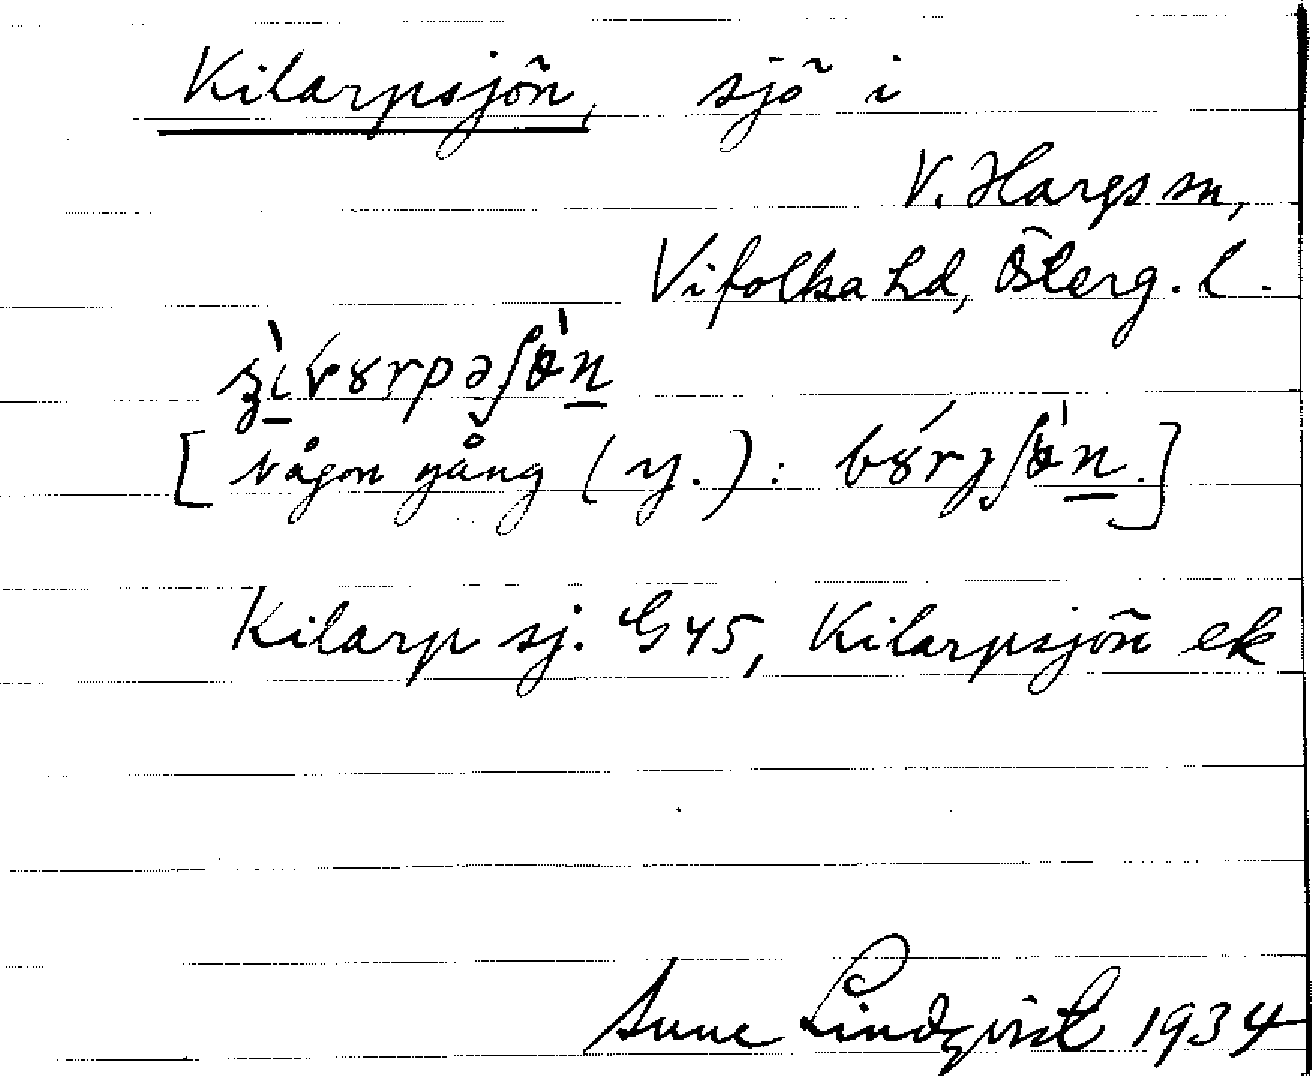 Kilarpsjön, sjö i
V. Hargs sn,
Vifolka hd, Österg. l.
[någon gång (y.):
Kilarp sj. G45, Kilarpsjön ek
Sune Lindqvist 1934